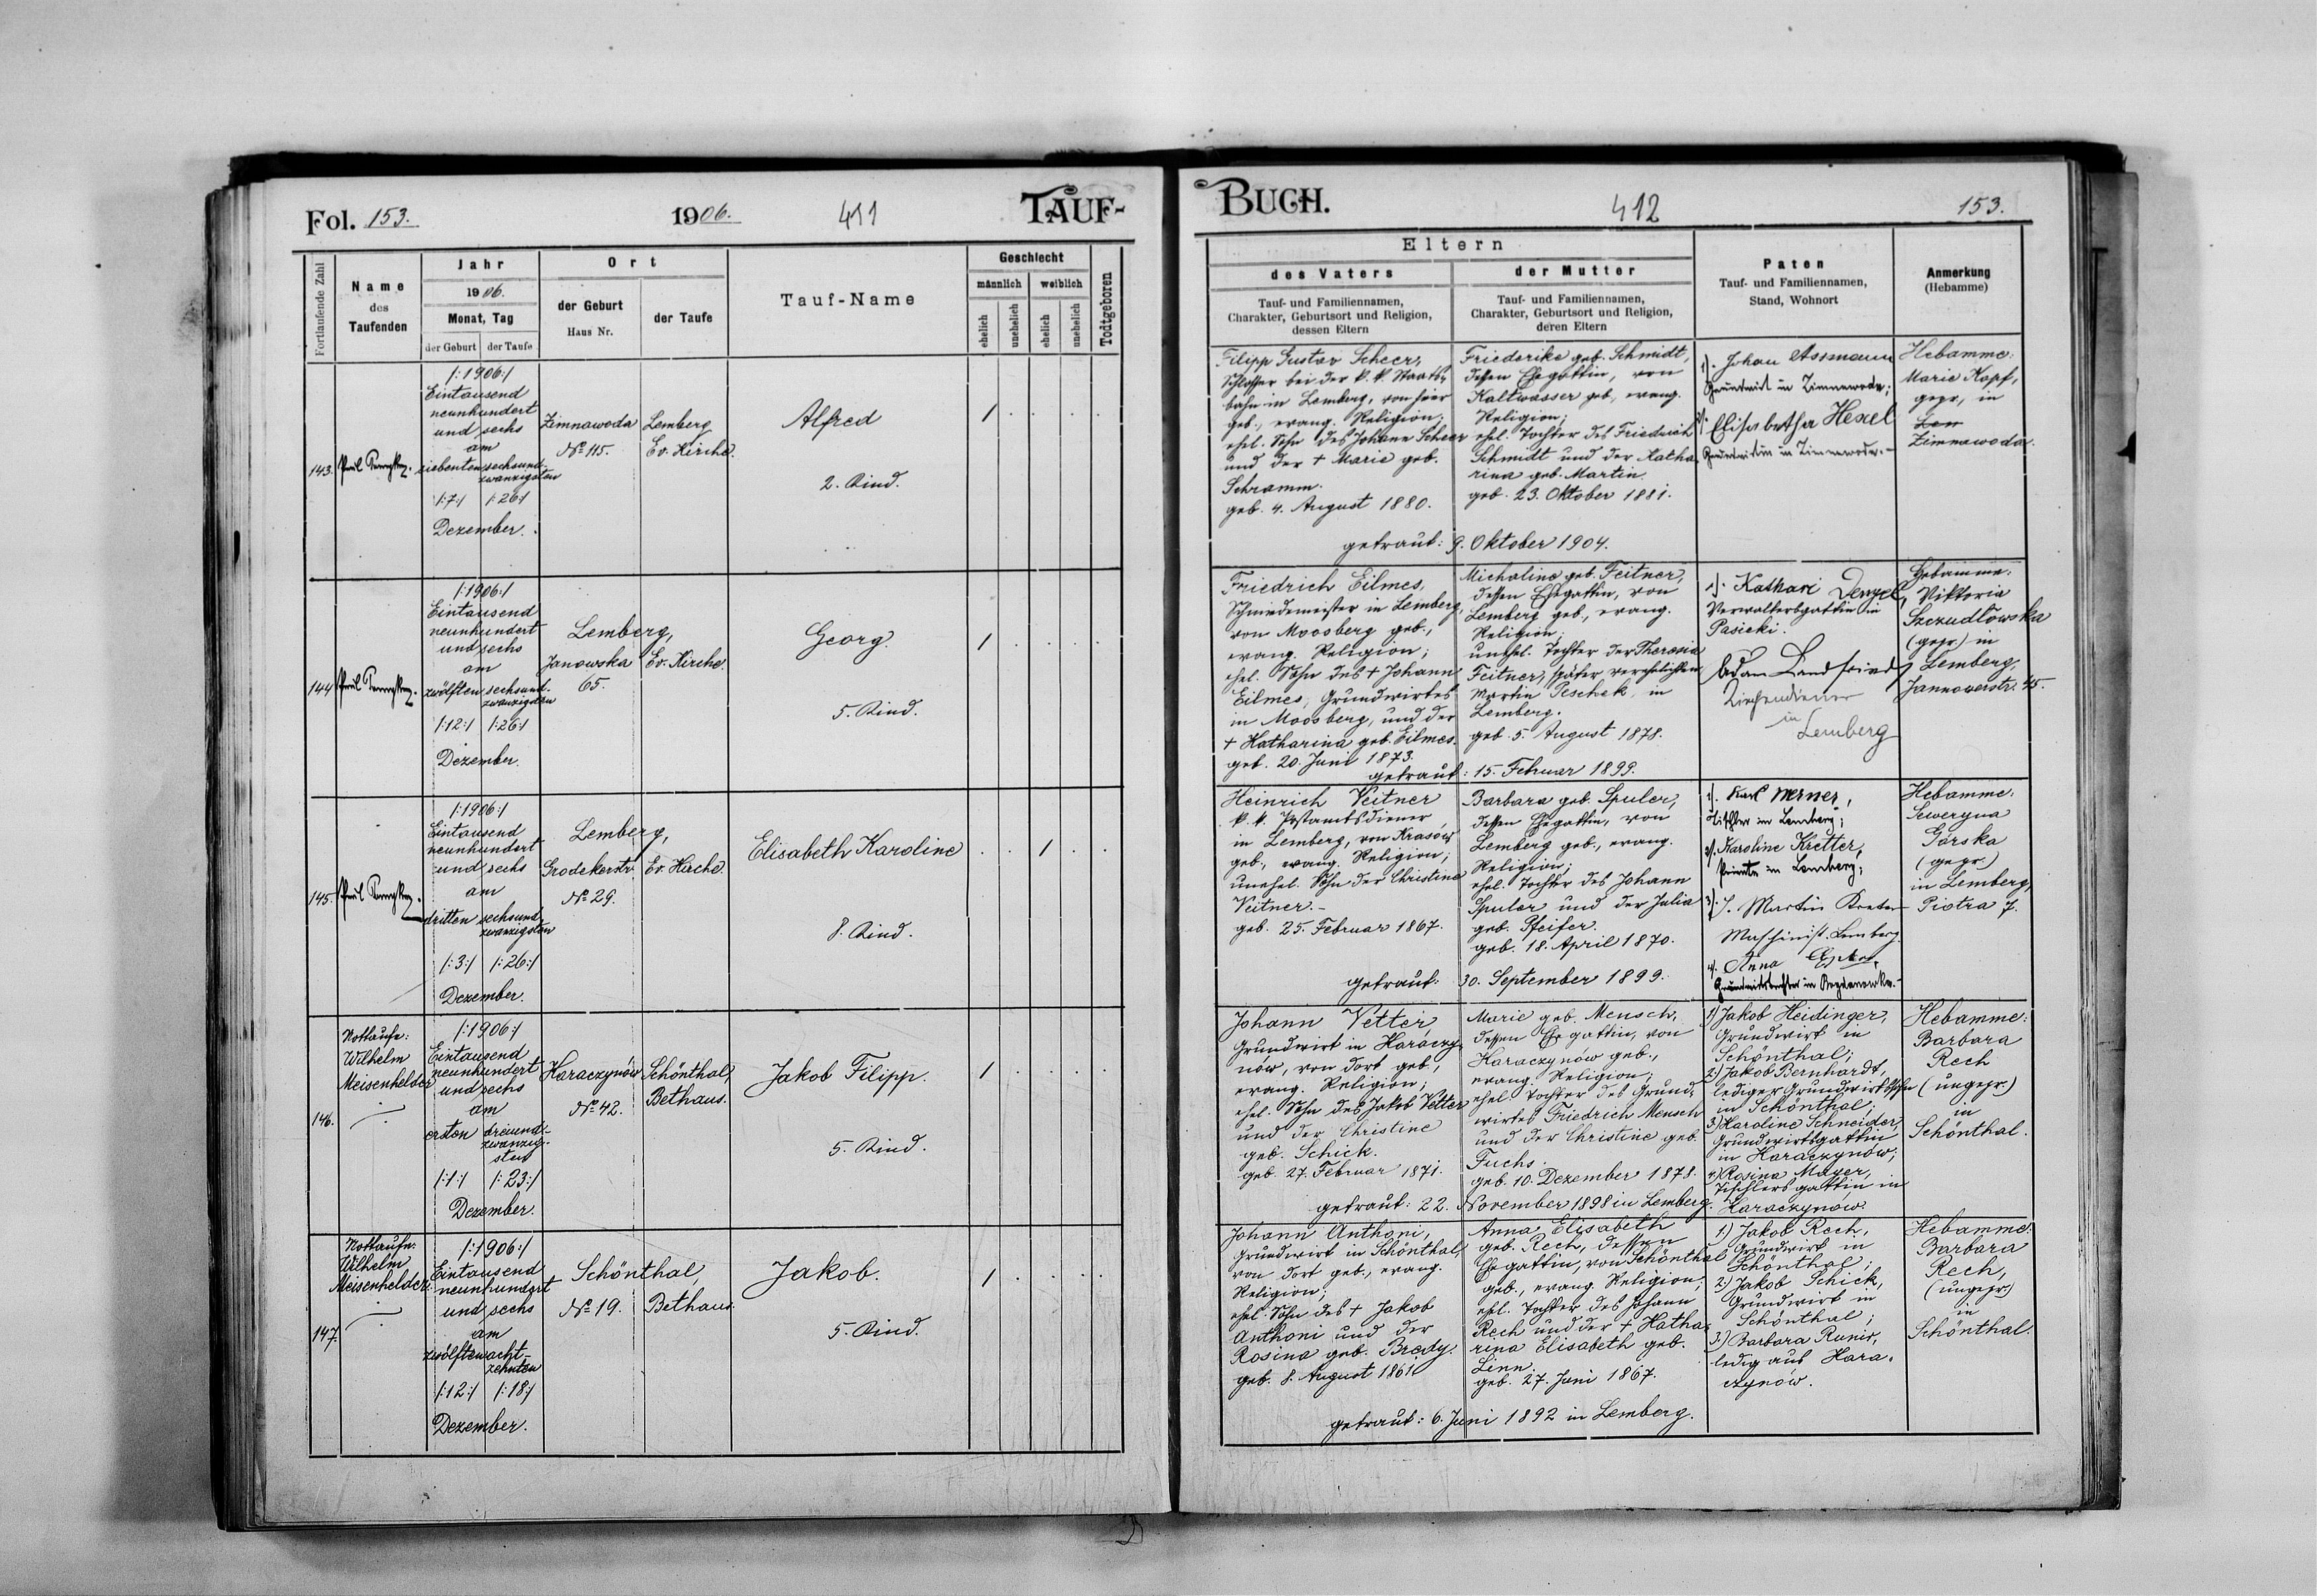 Fol. 153.
1906.
411
TAUF-
Fortlaufende Zahl
Name
des
Taufenden
Jahr
1906.
Monat, Tag
der Geburt
der Taufe
Ort
der Geburt
Haus Nr.
der Taufe
Tauf-Name
Geschlecht
männlich
weiblich
ehelich
unehelich
ehelich
unehelich
Todtgeboren
143.
/:1906:/
Eintausend
neunhundert
und sechs
am
siebenten sechsund-
zwanzigsten
/:7:/ /:26:/
Dezember.
Zimnawoda
No 115.
Lemberg
Ev. Kirche.
Alfred
2. Kind.
144
/:1906:/
Eintausend
neunhundert
und sechs
am
zwölften sechsund-
zwanzigsten
/:12:/ /:26:/
Dezember.
Lemberg,
Janowska Ev. Kirche.
65.
Georg.
5. Kind.
145.
/:1906:/
Eintausend
neunhundert
und sechs
am
dritten sechsund-
zwanzigsten
/:3:/ /:26:/
Dezember.
Lemberg,
Grodekerstr Ev. Kirche.
No 29.
Elisabeth Karoline
8. Kind.
146.
Nottaufe:
Wilhelm
Meisenhelder
/:1906:/
Eintausend
neunhundert
und sechs
am
ersten dreiund-
zwanzig-
sten
/:1:/ /:23:/
Dezember.
Haraczynów
No 42.
Schönthal,
Bethaus.
Jakob Filipp.
5. Kind.
147.
Nottaufe:
Wilhelm
Meisenhelder.
/:1906:/
Eintausend
neunhundert
und sechs
am
zwölften acht-
zehnten
/:12:/ /:18:/
Dezember.
Schönthal,
No 19. Bethaus.
Jakob.
5. Kind.
BUCH.
412
153.
Eltern
des Vaters
Tauf- und Familiennamen,
Charakter, Geburtsort und Religion,
dessen Eltern
der Mutter
Tauf- und Familiennamen,
Charakter, Geburtsort und Religion,
deren Eltern
Paten
Tauf- und Familiennamen,
Stand, Wohnort
Anmerkung
(Hebamme)
Filipp Gustav Scheer,
Schlosser bei der k. k. Staats-
bahn in Lemberg, von hier
geb., evang. Religion;
ehel. Sohn des Johann Scheer
und der + Marie geb.
Schramm.
geb. 4. August 1880.
Friederike geb. Schmidt,
dessen Ehegattin, von
Kaltwasser geb., evang.
Religion;
ehel. Tochter des Friedrich
Schmidt und der Katha-
rina geb. Martin.
geb. 23. Oktober 1881.
getraut: 9. Oktober 1904.
1). Johan Assmann
Grundwirt in Zimnawoda;
2). Elisabetha Hexel
Grundwirtin in Zimnawoda.
Hebamme:
Marie Kopf,
gepr., in
Zimnawoda.
Friedrich Eilmes,
Schmiedemeister in Lemberg,
von Moosberg geb.,
evang. Religion;
ehel. Sohn des + Johann
Eilmes, Grundwirtes
in Moosberg, und der
+ Katharina geb. Eilmes.
geb. 20. Juni 1873.
Micholine geb. Feitner,
dessen Ehegattin, von
Lemberg geb., evang.
Religion;
unehel. Tochter der Theresia
Feitner, später verehelichten
Martin Peschek, in
Lemberg.
geb. 5. August 1878.
getraut: 15. Februar 1899.
1). Kathari Denzel,
Verwaltersgattin in
Pasieki.
Adam Landfried
Kirchendiener
in
Lemberg
Hebamme:
Viktoria
Szczudlowska
(gepr.) in
Lemberg,
Jannowerstr. 45.
Heinrich Veitner
k. k. Postamtsdiener
in Lemberg, von Krasów
geb., evang. Religion;
unehel. Sohn der Christine
Veitner.-
geb. 25. Februar 1867.
Barbara geb. Spuler,
dessen Ehegattin, von
Lemberg geb., evang.
Religion;
ehel. Tochter des Johann
Spuler und der Julia
geb. Pfeifer.
geb. 18. April 1870.
getraut: 30. September 1899.
1). Karl Werner,
Tischler in Lemberg;
2). Karoline Kretter,
Private in Lemberg;
3). J. Martin
Maschinist. Lemberg.
4). Anna
Hebamme:
Seweryna
Górska
(gepr.)
in Lemberg,
Piotra 7.
Johann Vetter,
Grundwirt in Haraczy-
nów, von dort geb.,
evang. Religion;
ehel. Sohn des Jakob Vetter
und der Christine
geb. Schick.
geb. 27. Februar 1871.
Marie geb. Mensch,
dessen Ehegattin, von
Haraczynów geb.,
evang. Religion;
ehel. Tochter des Grund-
wirtes Friedrich Mensch
und der Christine geb.
Fuchs.
geb. 10. Dezember 1878.
getraut: 22. November 1898 in Lemberg.
1) Jakob Heidinger,
Grundwirt in
Schönthal;
2.) Jakob Bernhardt,
lediger Grundwirtssohn
in Schönthal;
3.) Karoline Schneider,
Grundwirtsgattin
in Haraczynów;
4.) Rosina Mayer,
Tischlersgattin in
Haraczynów.
Hebamme:
Barbara
Rech
(ungepr.)
in
Schönthal.
Johann Anthoni,
Grundwirt in Schönthal,
von dort geb., evang.
Religion;
ehel. Sohn des + Jakob
Anthoni und der
Rosina geb. Bredy.
geb. 8. August 1861.
Anna Elisabeth
geb. Rech, dessen
Ehegattin, von Schönthal
geb., evang. Religion;
ehel. Tochter des Johann
Rech und der + Katha-
rina Elisabeth geb.
Linn.
geb. 27. Juni 1867.
getraut: 6. Juni 1892 in Lemberg.
1) Jakob Rech,
Grundwirt in
Schönthal;
2.) Jakob Schick,
Grundwirt in
Schönthal;
3.) Barbara Runir,
ledig aus Hara-
czynów.
Hebamme:
Barbara
Rech,
(ungepr.)
in
Schönthal.